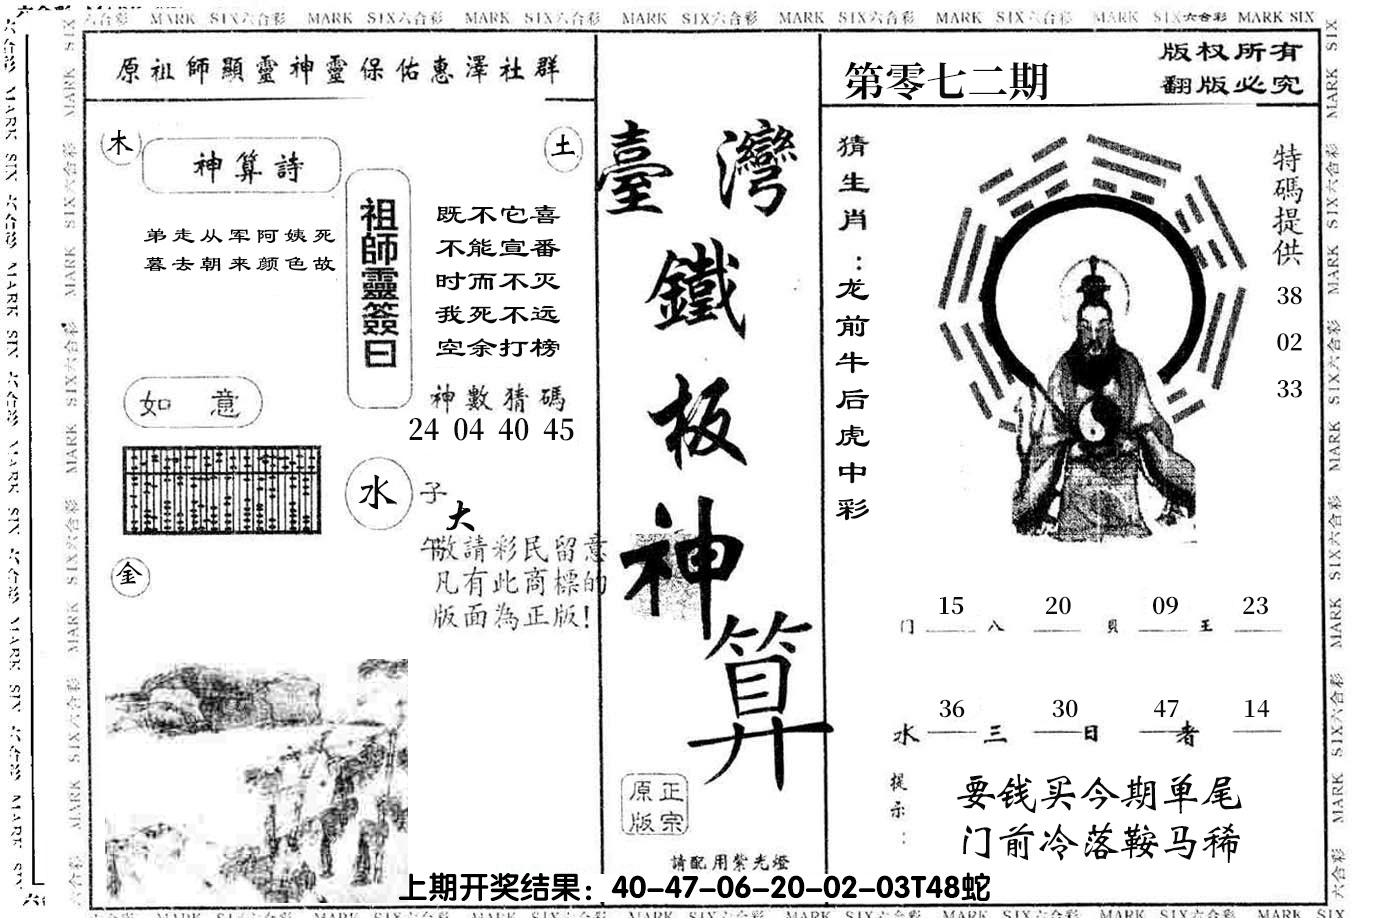 MARK SIX六合彩 MARK SIX六合彩 MARK SIX六合彩 MARK SIX六合彩 MARK SIX六合彩 MARK SIX六合彩 MARK SIX六合彩 MARK SIX
原祖師顯靈神靈保佑惠澤社群
木
神算詩
土
弟走从军阿姨死
暮去朝来颜色故
祖師靈簽曰
既不它喜
不能宣番
时而不灭
我死不远
空余打榜
神數猜碼
24 04 40 45
如 意
水
子
大
午
敬請彩民留意
凡有此商標的
版面為正版!
金
臺灣
鐵
板
神
算
正宗
原版
請配用紫光燈
第零七二期
版权所有
翻版必究
猜生肖:龙前牛后虎中彩
特碼提供
38
02
33
15 20 09 23
门 八 貝 王
36 30 47 14
水 三 日 者
提示:
要钱买今期单尾
门前冷落鞍马稀
上期开奖结果：40-47-06-20-02-03T48蛇